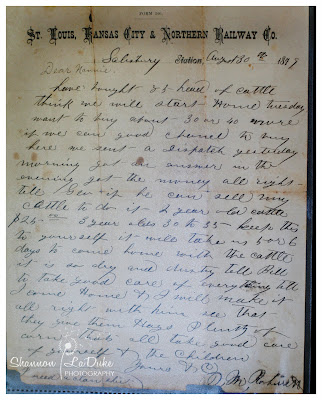 FORM 30.
St. Louis, Kansas City & Northern Railway Co.
Salisbury Station, August 30 th 1879
Dear Nannie
have bought 83 head of cattle
think we will start Home tuesday
want to buy about 30 or so more
if we can good chance to buy
here we sent a Dispatch yesterday
morning got an answer in the
evening got the money all right
tell if he can sell my
cattle to do it 2 year old cattle
$25 3 year olds 30 to 35 keep this
to yourself it will take us 5 or 6
days to come home with the cattle
it is so dry and dusty tell Bill
to take good care of everything till
I come Home & I will make it
all right with him see that
they give them Hogs Plenty of
corn take all take good care
of yourself & the children
Yours &c
Shannon LaDuke
PHOTOGRAPHY